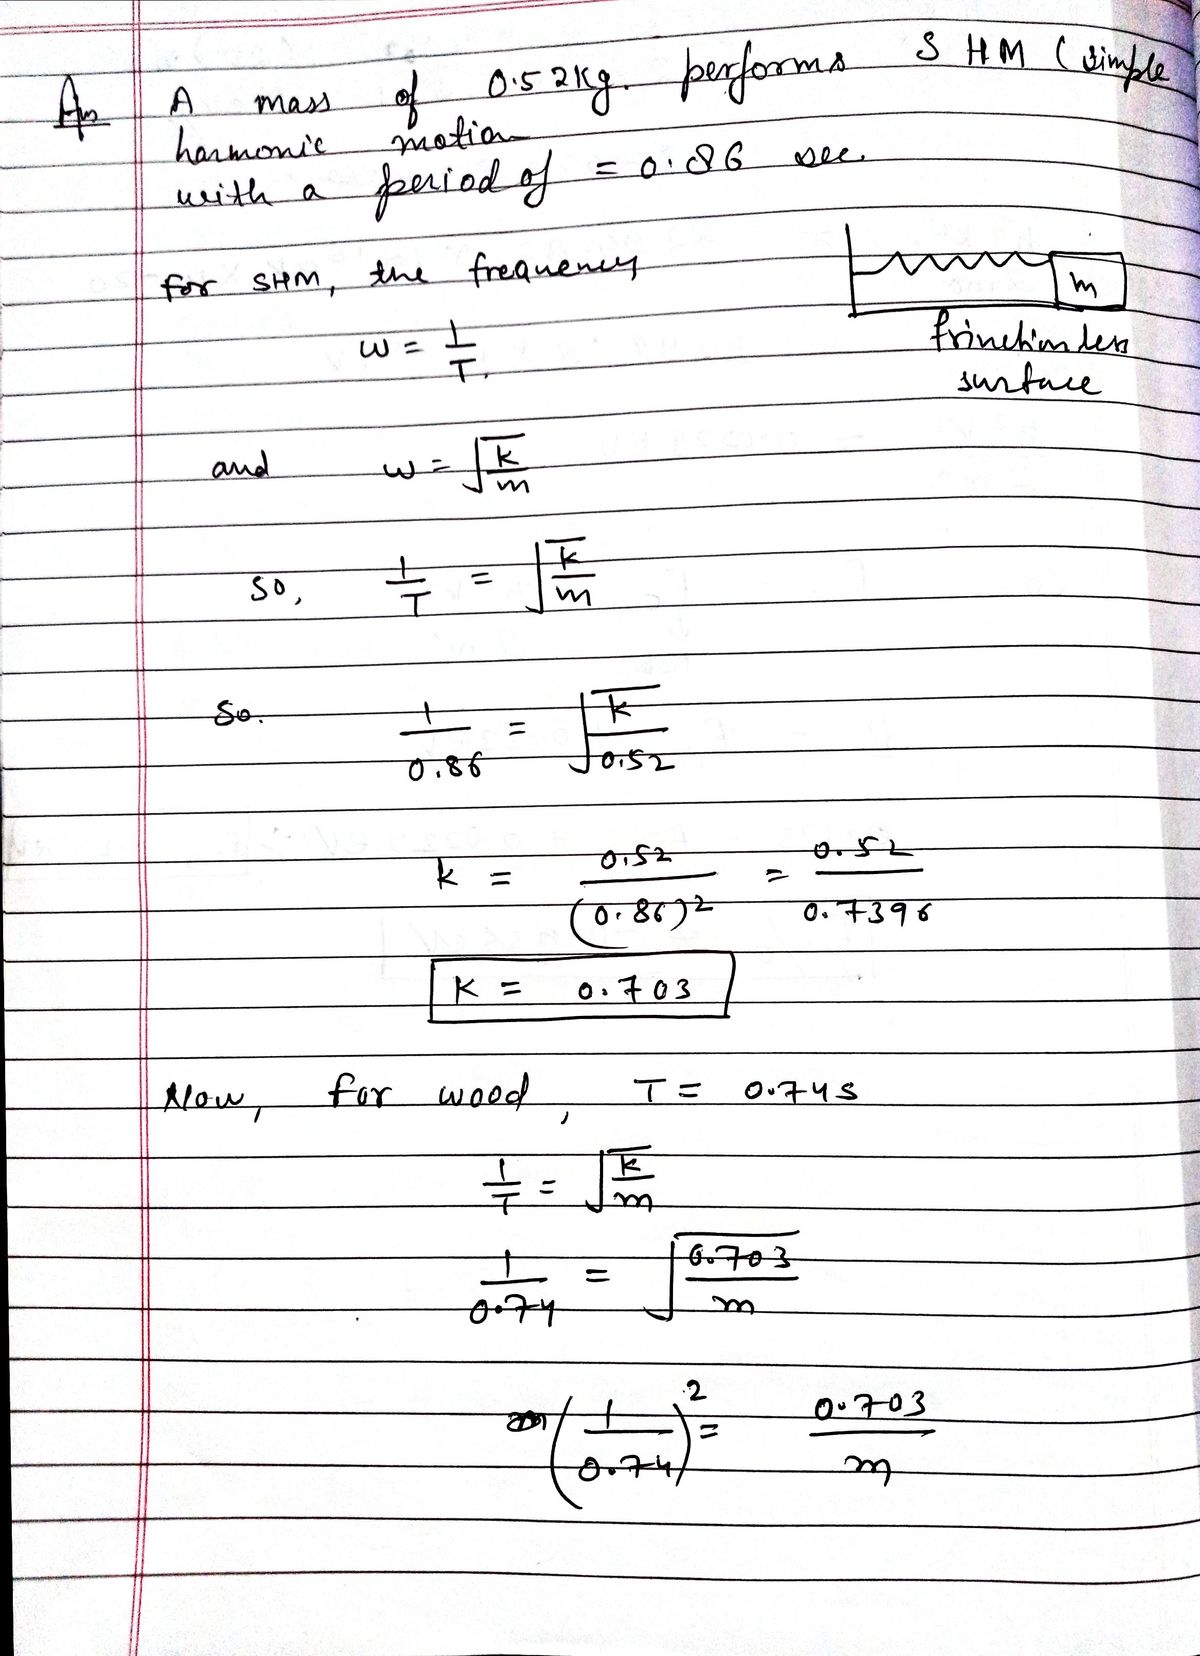 An A mass of 0.52kg. performs SHM (simple
harmonic motion
with a period of = 0.86 sec.
for SHM, the frequency
m
frinctionless
surface
w = 1/T.
and w = √(k/m)
so, 1/T = √(k/m)
So. 1/0.86 = √(k/0.52)
k = 0.52/(0.86)² = 0.52/0.7396
K = 0.703
Now, for wood, T = 0.74s
1/T = √(k/m)
1/0.74 = √(0.703/m)
(1/0.74)² = 0.703/m